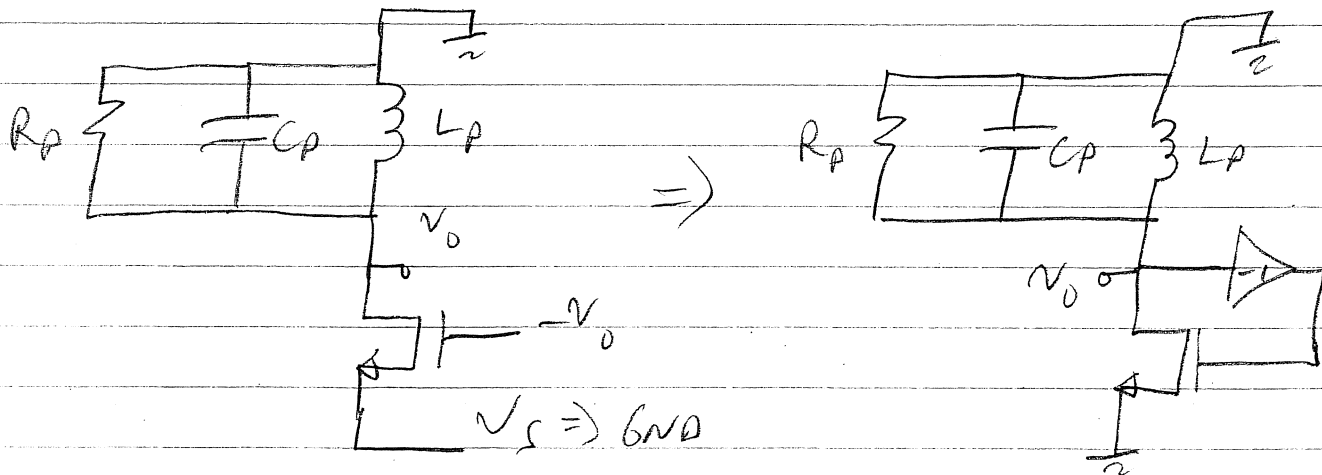 Rp
Cp
Lp
Vo
-Vo
Vs => GND
=>
Rp
Cp
Lp
Vo
-1